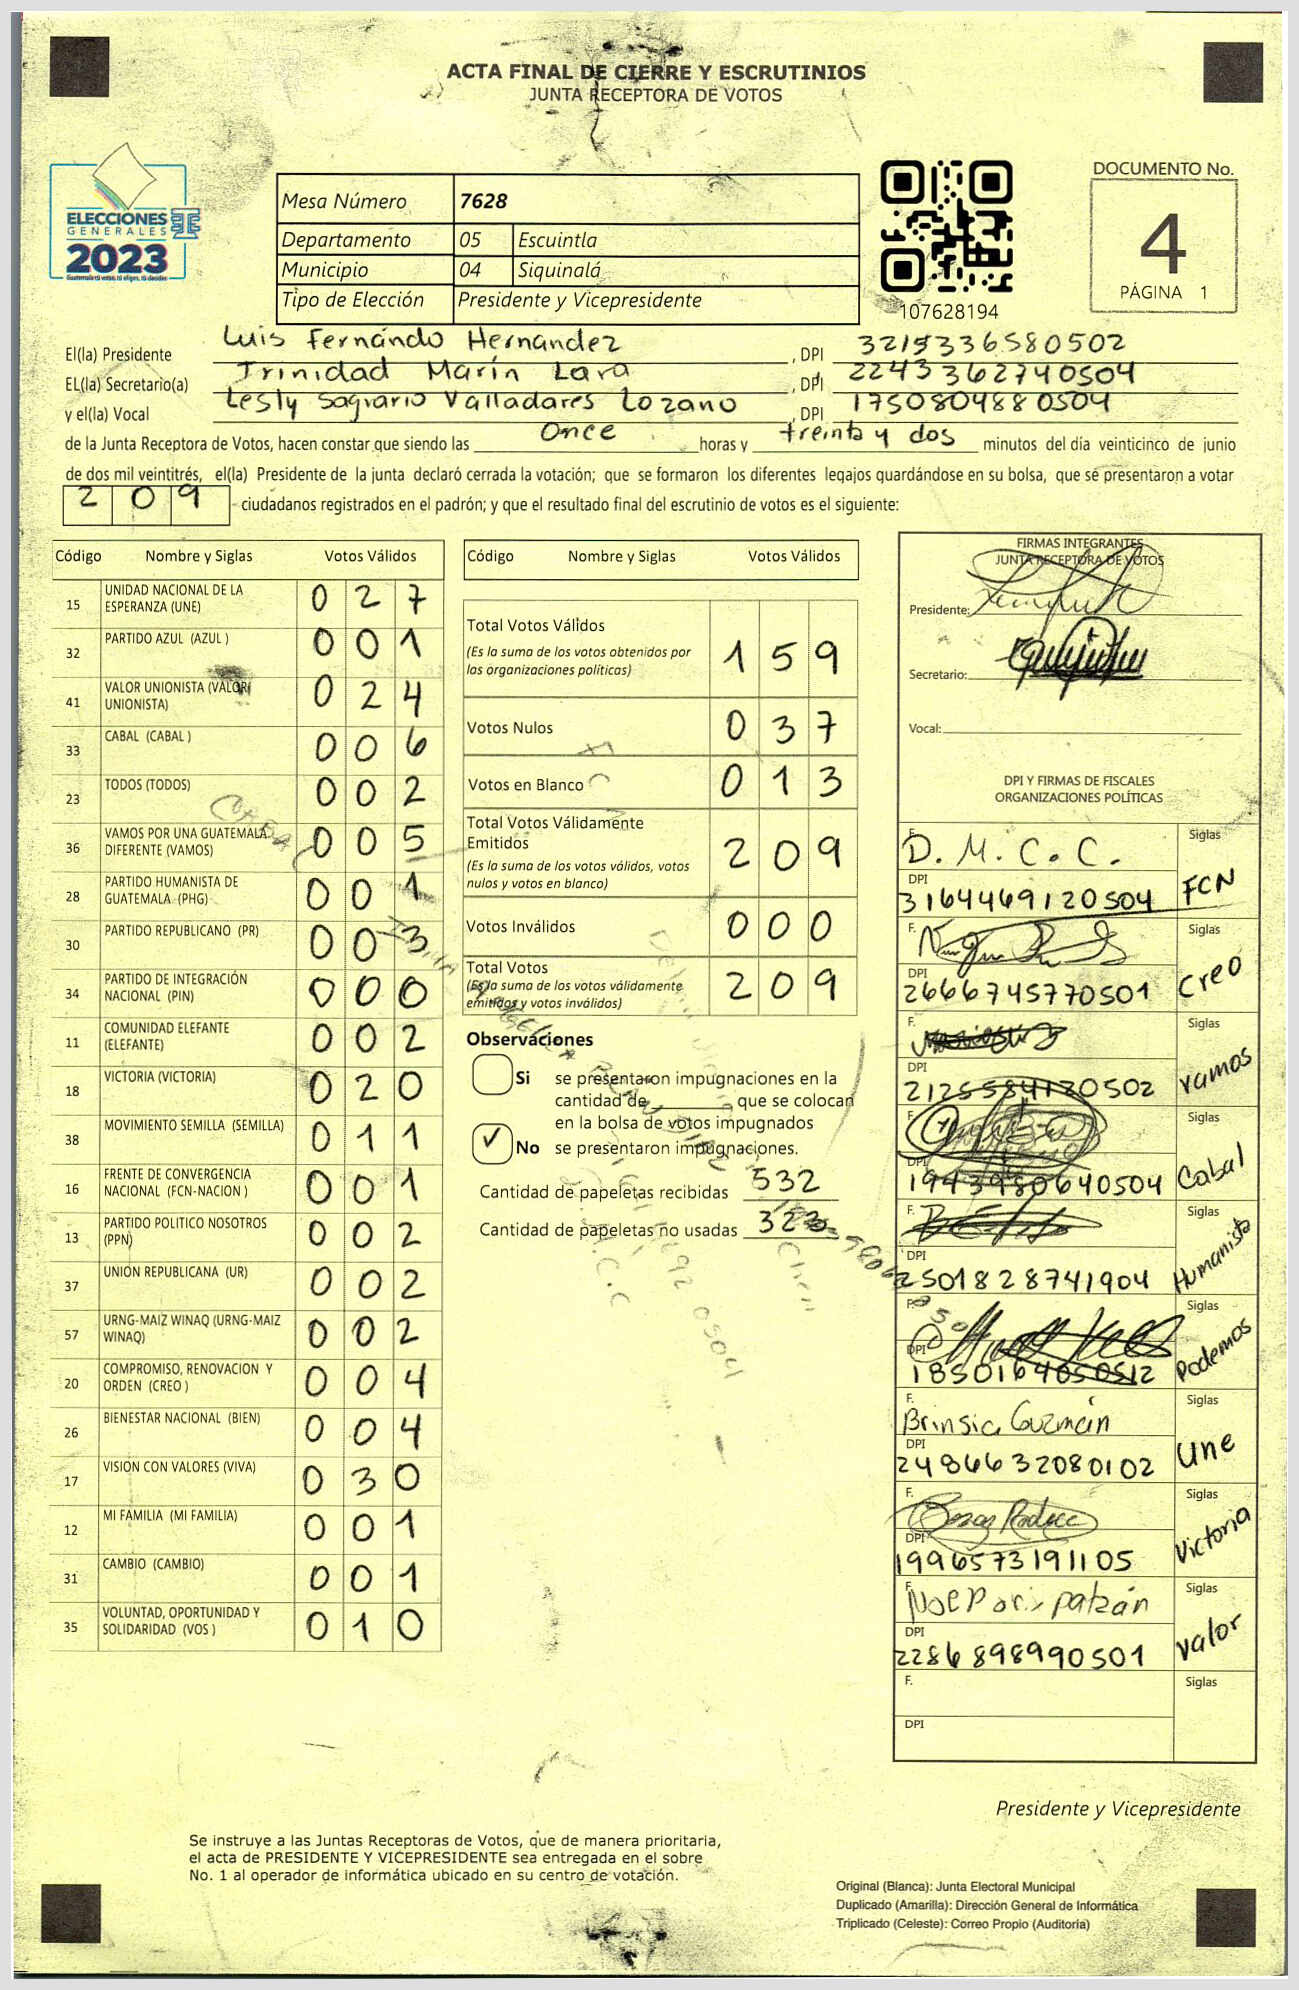 ACTA FINAL DE CIERRE Y ESCRUTINIOS
JUNTA RECEPTORA DE VOTOS
ELECCIONES
GENERALES
2023
Guatemala tú votas, tú eliges, tú decides
Mesa Número 7628
Departamento 05 Escuintla
Municipio 04 Siquinalá
Tipo de Elección Presidente y Vicepresidente
107628194
DOCUMENTO No.
4
PÁGINA 1
El(la) Presidente Luis Fernándo Hernández , DPI 3215336580502
EL(la) Secretario(a) Trinidad Marín Lara , DPI 2243362740504
y el(la) Vocal Lesly Sagrario Valladares Lozano , DPI 1750804880504
de la Junta Receptora de Votos, hacen constar que siendo las Once horas y treinta y dos minutos del día veinticinco de junio
de dos mil veintitrés, el(la) Presidente de la junta declaró cerrada la votación; que se formaron los diferentes legajos guardándose en su bolsa, que se presentaron a votar
209 ciudadanos registrados en el padrón; y que el resultado final del escrutinio de votos es el siguiente:
Código Nombre y Siglas Votos Válidos
15 UNIDAD NACIONAL DE LA ESPERANZA (UNE) 027
32 PARTIDO AZUL (AZUL ) 001
41 VALOR UNIONISTA (VALOR UNIONISTA) 024
33 CABAL (CABAL ) 006
23 TODOS (TODOS) 002
36 VAMOS POR UNA GUATEMALA DIFERENTE (VAMOS) 005
28 PARTIDO HUMANISTA DE GUATEMALA (PHG) 001
30 PARTIDO REPUBLICANO (PR) 003
34 PARTIDO DE INTEGRACIÓN NACIONAL (PIN) 000
11 COMUNIDAD ELEFANTE (ELEFANTE) 002
18 VICTORIA (VICTORIA) 020
38 MOVIMIENTO SEMILLA (SEMILLA) 011
16 FRENTE DE CONVERGENCIA NACIONAL (FCN-NACION ) 001
13 PARTIDO POLITICO NOSOTROS (PPN) 002
37 UNION REPUBLICANA (UR) 002
57 URNG-MAIZ WINAQ (URNG-MAIZ WINAQ) 002
20 COMPROMISO, RENOVACION Y ORDEN (CREO ) 004
26 BIENESTAR NACIONAL (BIEN) 004
17 VISION CON VALORES (VIVA) 030
12 MI FAMILIA (MI FAMILIA) 001
31 CAMBIO (CAMBIO) 001
35 VOLUNTAD, OPORTUNIDAD Y SOLIDARIDAD (VOS ) 010
Código Nombre y Siglas Votos Válidos
Total Votos Válidos 159
(Es la suma de los votos obtenidos por las organizaciones políticas)
Votos Nulos 037
Votos en Blanco 013
Total Votos Válidamente Emitidos 209
(Es la suma de los votos válidos, votos nulos y votos en blanco)
Votos Inválidos 000
Total Votos 209
(Es la suma de los votos válidamente emitidos y votos inválidos)
Observaciones
Si se presentaron impugnaciones en la
cantidad de que se colocan
en la bolsa de votos impugnados
✓ No se presentaron impugnaciones.
Cantidad de papeletas recibidas 532
Cantidad de papeletas no usadas 323
FIRMAS INTEGRANTES
JUNTA RECEPTORA DE VOTOS
Presidente:
Secretario:
Vocal:
DPI Y FIRMAS DE FISCALES
ORGANIZACIONES POLÍTICAS
F. D. M. C. C. Siglas FCN
DPI 3164469120504
F. Siglas Creo
DPI 2666745770501
F. Siglas Vamos
DPI 2125584130502
F. Siglas Cabal
DPI 1943980640504
F. Siglas Humanista
DPI 2501828741904
F. Siglas Podemos
DPI 1850164050512
F. Brinsia Guzmán Siglas Une
DPI 2486632080102
F. Siglas Victoria
DPI 1996573191105
F. Noe patzán Siglas Valor
DPI 2286898990501
F. Siglas
DPI
Presidente y Vicepresidente
Se instruye a las Juntas Receptoras de Votos, que de manera prioritaria,
el acta de PRESIDENTE Y VICEPRESIDENTE sea entregada en el sobre
No. 1 al operador de informática ubicado en su centro de votación.
Original (Blanca): Junta Electoral Municipal
Duplicado (Amarilla): Dirección General de Informática
Triplicado (Celeste): Correo Propio (Auditoría)